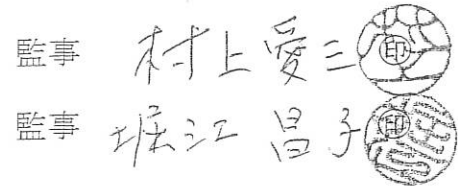 監事 村上愛三 印
監事 堀江昌子 印